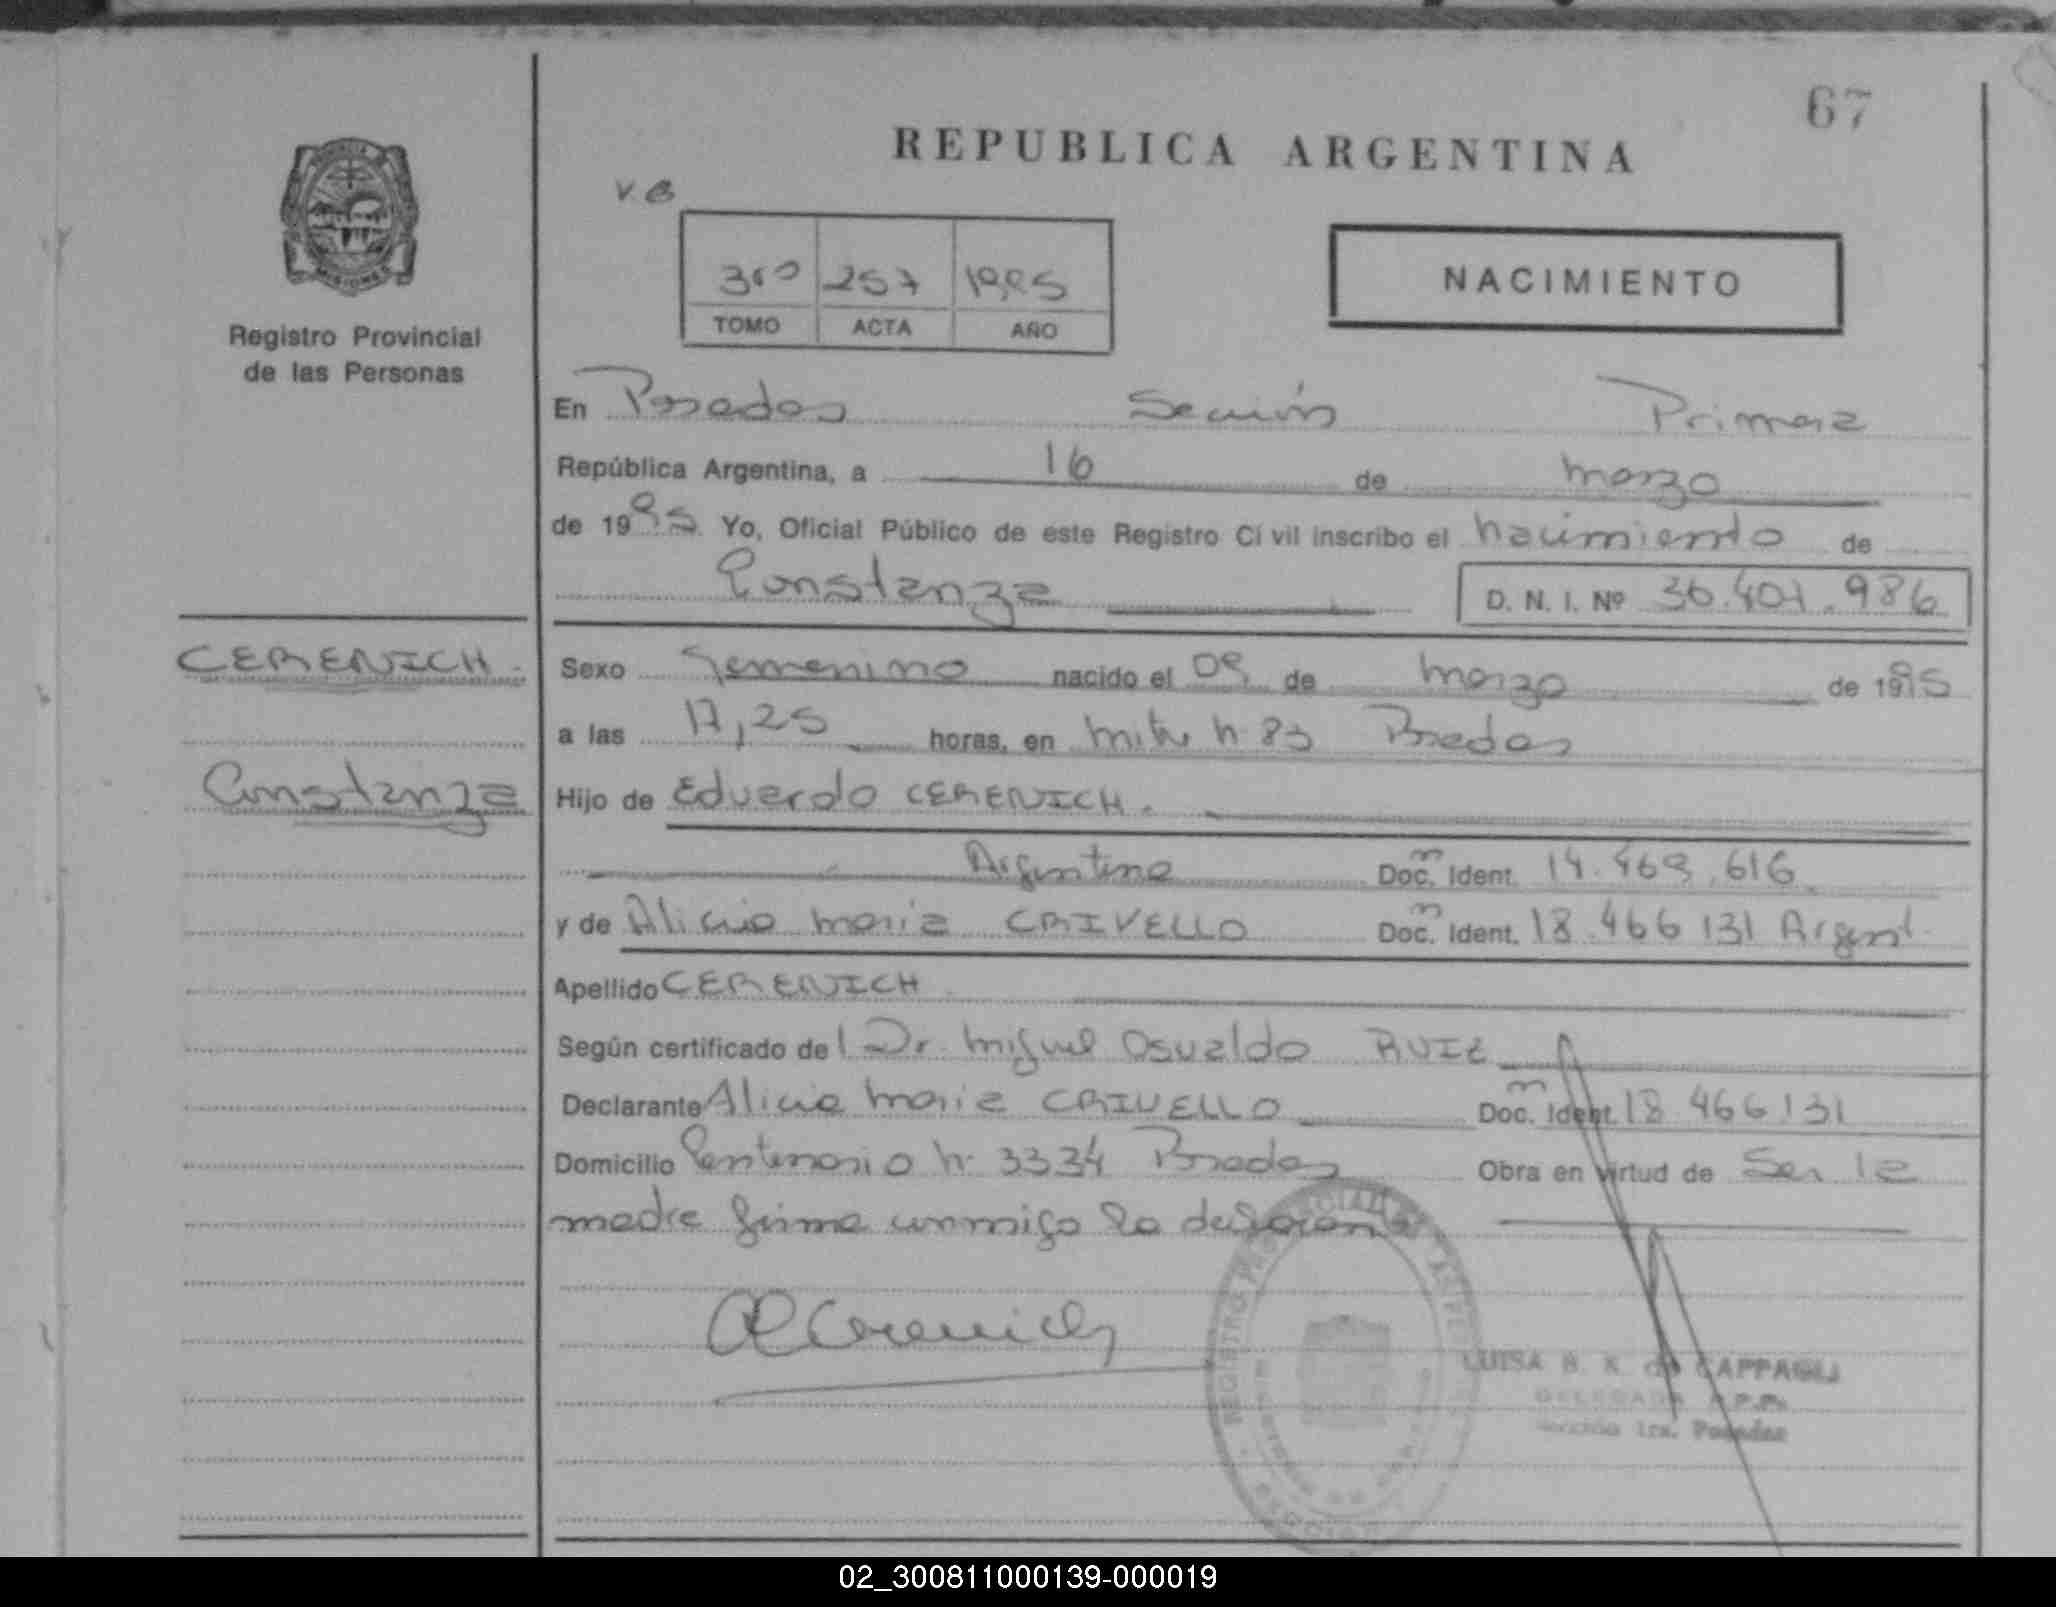 67
REPUBLICA ARGENTINA
V.B
3ro 257 1995
TOMO ACTA AÑO
NACIMIENTO
PROVINCIA DE MISIONES
Registro Provincial
de las Personas
En Posadas Sección Primera
República Argentina, a 16 de marzo
de 1995 Yo, Oficial Público de este Registro Civil inscribo el nacimiento de
Constanza D. N. I. Nº 36.401.986
CERENICH.
Sexo Femenino nacido el 09 de marzo de 1995
a las 17,25 horas, en mitre n 83 Posadas
Constanza
Hijo de Eduardo CERENICH.
Argentina Doc. Ident. 14.469.616
y de Alicia maria CRIVELLO Doc. Ident. 18.466 131 Argent.
Apellido CERENICH
Según certificado del Dr. miguel Osvaldo RUIZ
Declarante Alicia maria CRIVELLO Doc. Ident. 18 466 131
Domicilio Centenario n 3334 Posadas Obra en virtud de Ser la
madre firma conmigo la
LUISA de CAPPAGLI
DELEGADA R.P.P.
Sección 1ra. Posadas
02_300811000139-000019